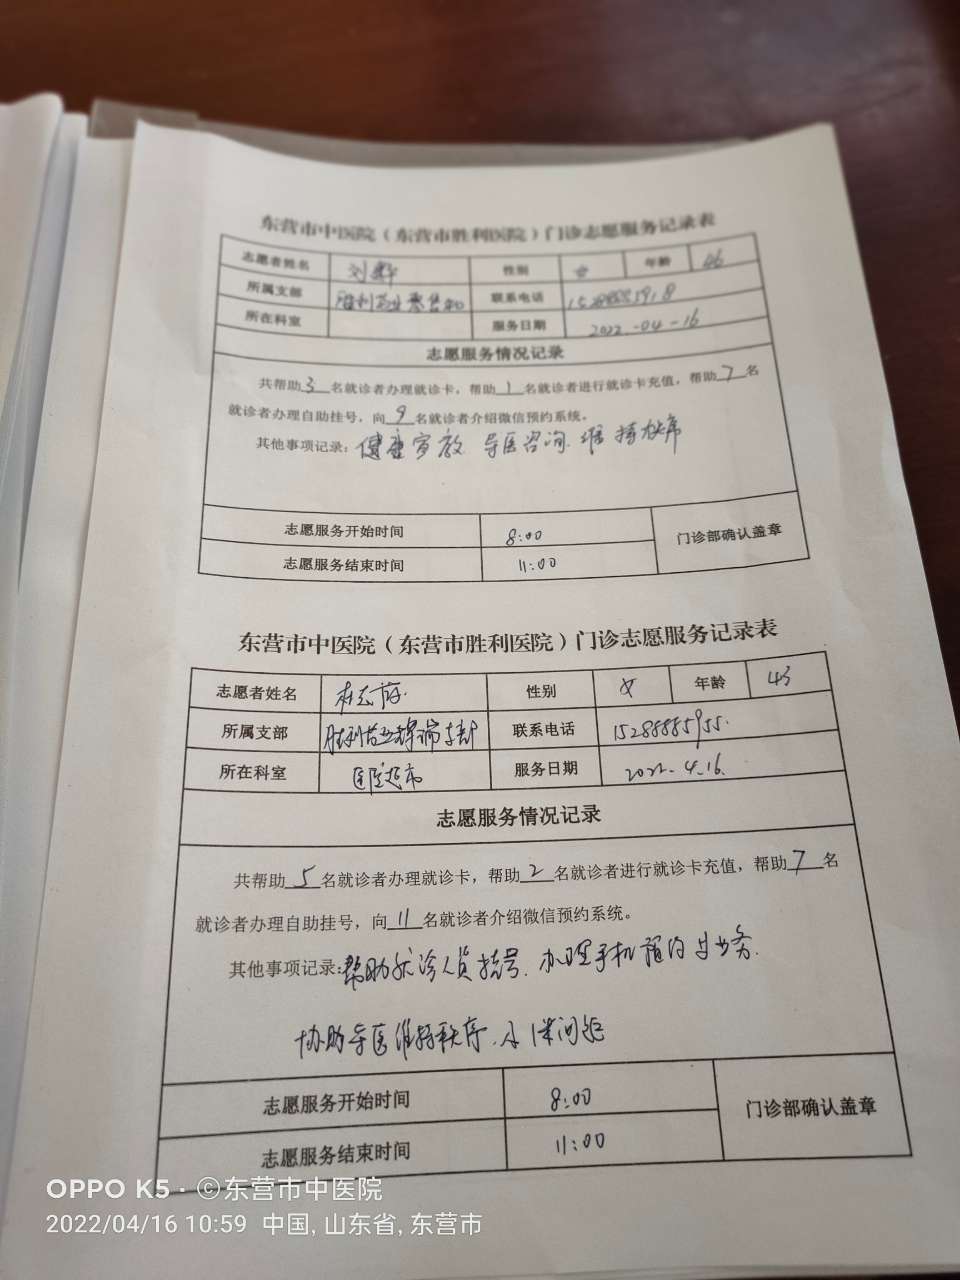 东营市中医院（东营市胜利医院）门诊志愿服务记录表
志愿者姓名 刘 性别 女 年龄 46
所属支部 胜利药业零售 联系电话
所在科室 服务日期 2022.-04-16
志愿服务情况记录
共帮助3名就诊者办理就诊卡，帮助1名就诊者进行就诊卡充值，帮助7名
就诊者办理自助挂号，向9名就诊者介绍微信预约系统。
其他事项记录：健康宣教. 导医咨询. 维持秩序
志愿服务开始时间 8:00 门诊部确认盖章
志愿服务结束时间 11:00
东营市中医院（东营市胜利医院）门诊志愿服务记录表
志愿者姓名 性别 女 年龄 43
所属支部 胜利药业 支部 联系电话 15288885955.
所在科室 医院超市 服务日期 2022.4.16.
志愿服务情况记录
共帮助5名就诊者办理就诊卡，帮助2名就诊者进行就诊卡充值，帮助7名
就诊者办理自助挂号，向11名就诊者介绍微信预约系统。
其他事项记录：帮助就诊人员挂号. 办理手机预约 业务.
协助导医维持秩序. 1米间距
志愿服务开始时间 8:00 门诊部确认盖章
志愿服务结束时间 11:00
OPPO K5 · ©东营市中医院
2022/04/16 10:59 中国, 山东省, 东营市